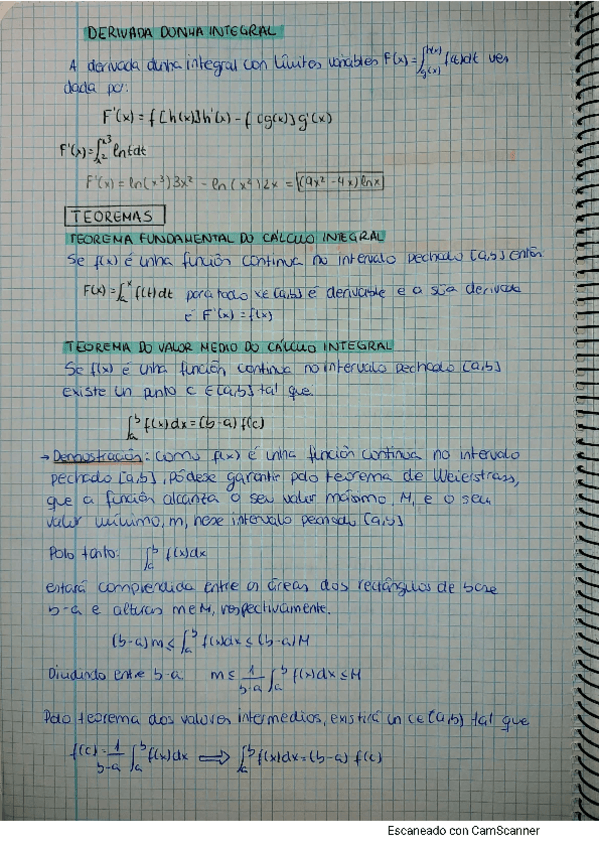 DERIVADA DUNHA INTEGRAL
A derivada dunha integral con límites variables F(x)=∫_{g(x)}^{h(x)} f(t)dt ven
dada por:
F'(x) = f[h(x)]h'(x) - f[g(x)]g'(x)
F'(x)=∫_{x²}^{x³} lntdt
F'(x) = ln(x³)3x² - ln(x²)2x = (9x²-4x)lnx
TEOREMAS
TEOREMA FUNDAMENTAL DO CÁLCULO INTEGRAL
Se f(x) é unha función continua no intervalo pechado [a,b] entón
F(x)=∫_a^x f(t)dt para todo x∈[a,b] é derivable e a súa derivada
é F'(x)=f(x)
TEOREMA DO VALOR MEDIO DO CÁLCULO INTEGRAL
Se f(x) é unha función continua no intervalo pechado [a,b]
existe un punto c ∈[a,b] tal que
∫_a^b f(x)dx=(b-a)f(c)
→ Demostración: como f(x) é unha función continua no intervalo
pechado [a,b], pódese garantir polo teorema de Weierstrass,
que a función alcanza o seu valor máximo, M, e o seu
valor mínimo, m, nese intervalo pechado [a,b]
Polo tanto: ∫_a^b f(x)dx
estará comprendida entre as áreas dos rectángulos de base
b-a e alturas m e M, respectivamente.
(b-a)m ≤ ∫_a^b f(x)dx ≤ (b-a)M
Dividindo entre b-a m ≤ 1/(b-a) ∫_a^b f(x)dx ≤ M
Polo teorema dos valores intermedios, existirá un c∈[a,b] tal que
f(c) = 1/(b-a) ∫_a^b f(x)dx ⟹ ∫_a^b f(x)dx=(b-a) f(c)
Escaneado con CamScanner